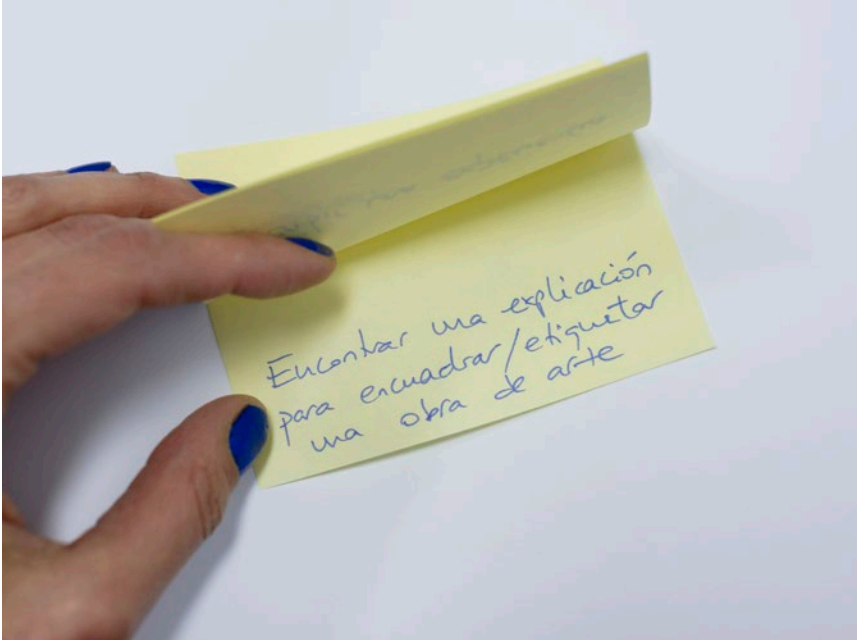 Encontrar una explicación
para encuadrar/etiquetar
una obra de arte